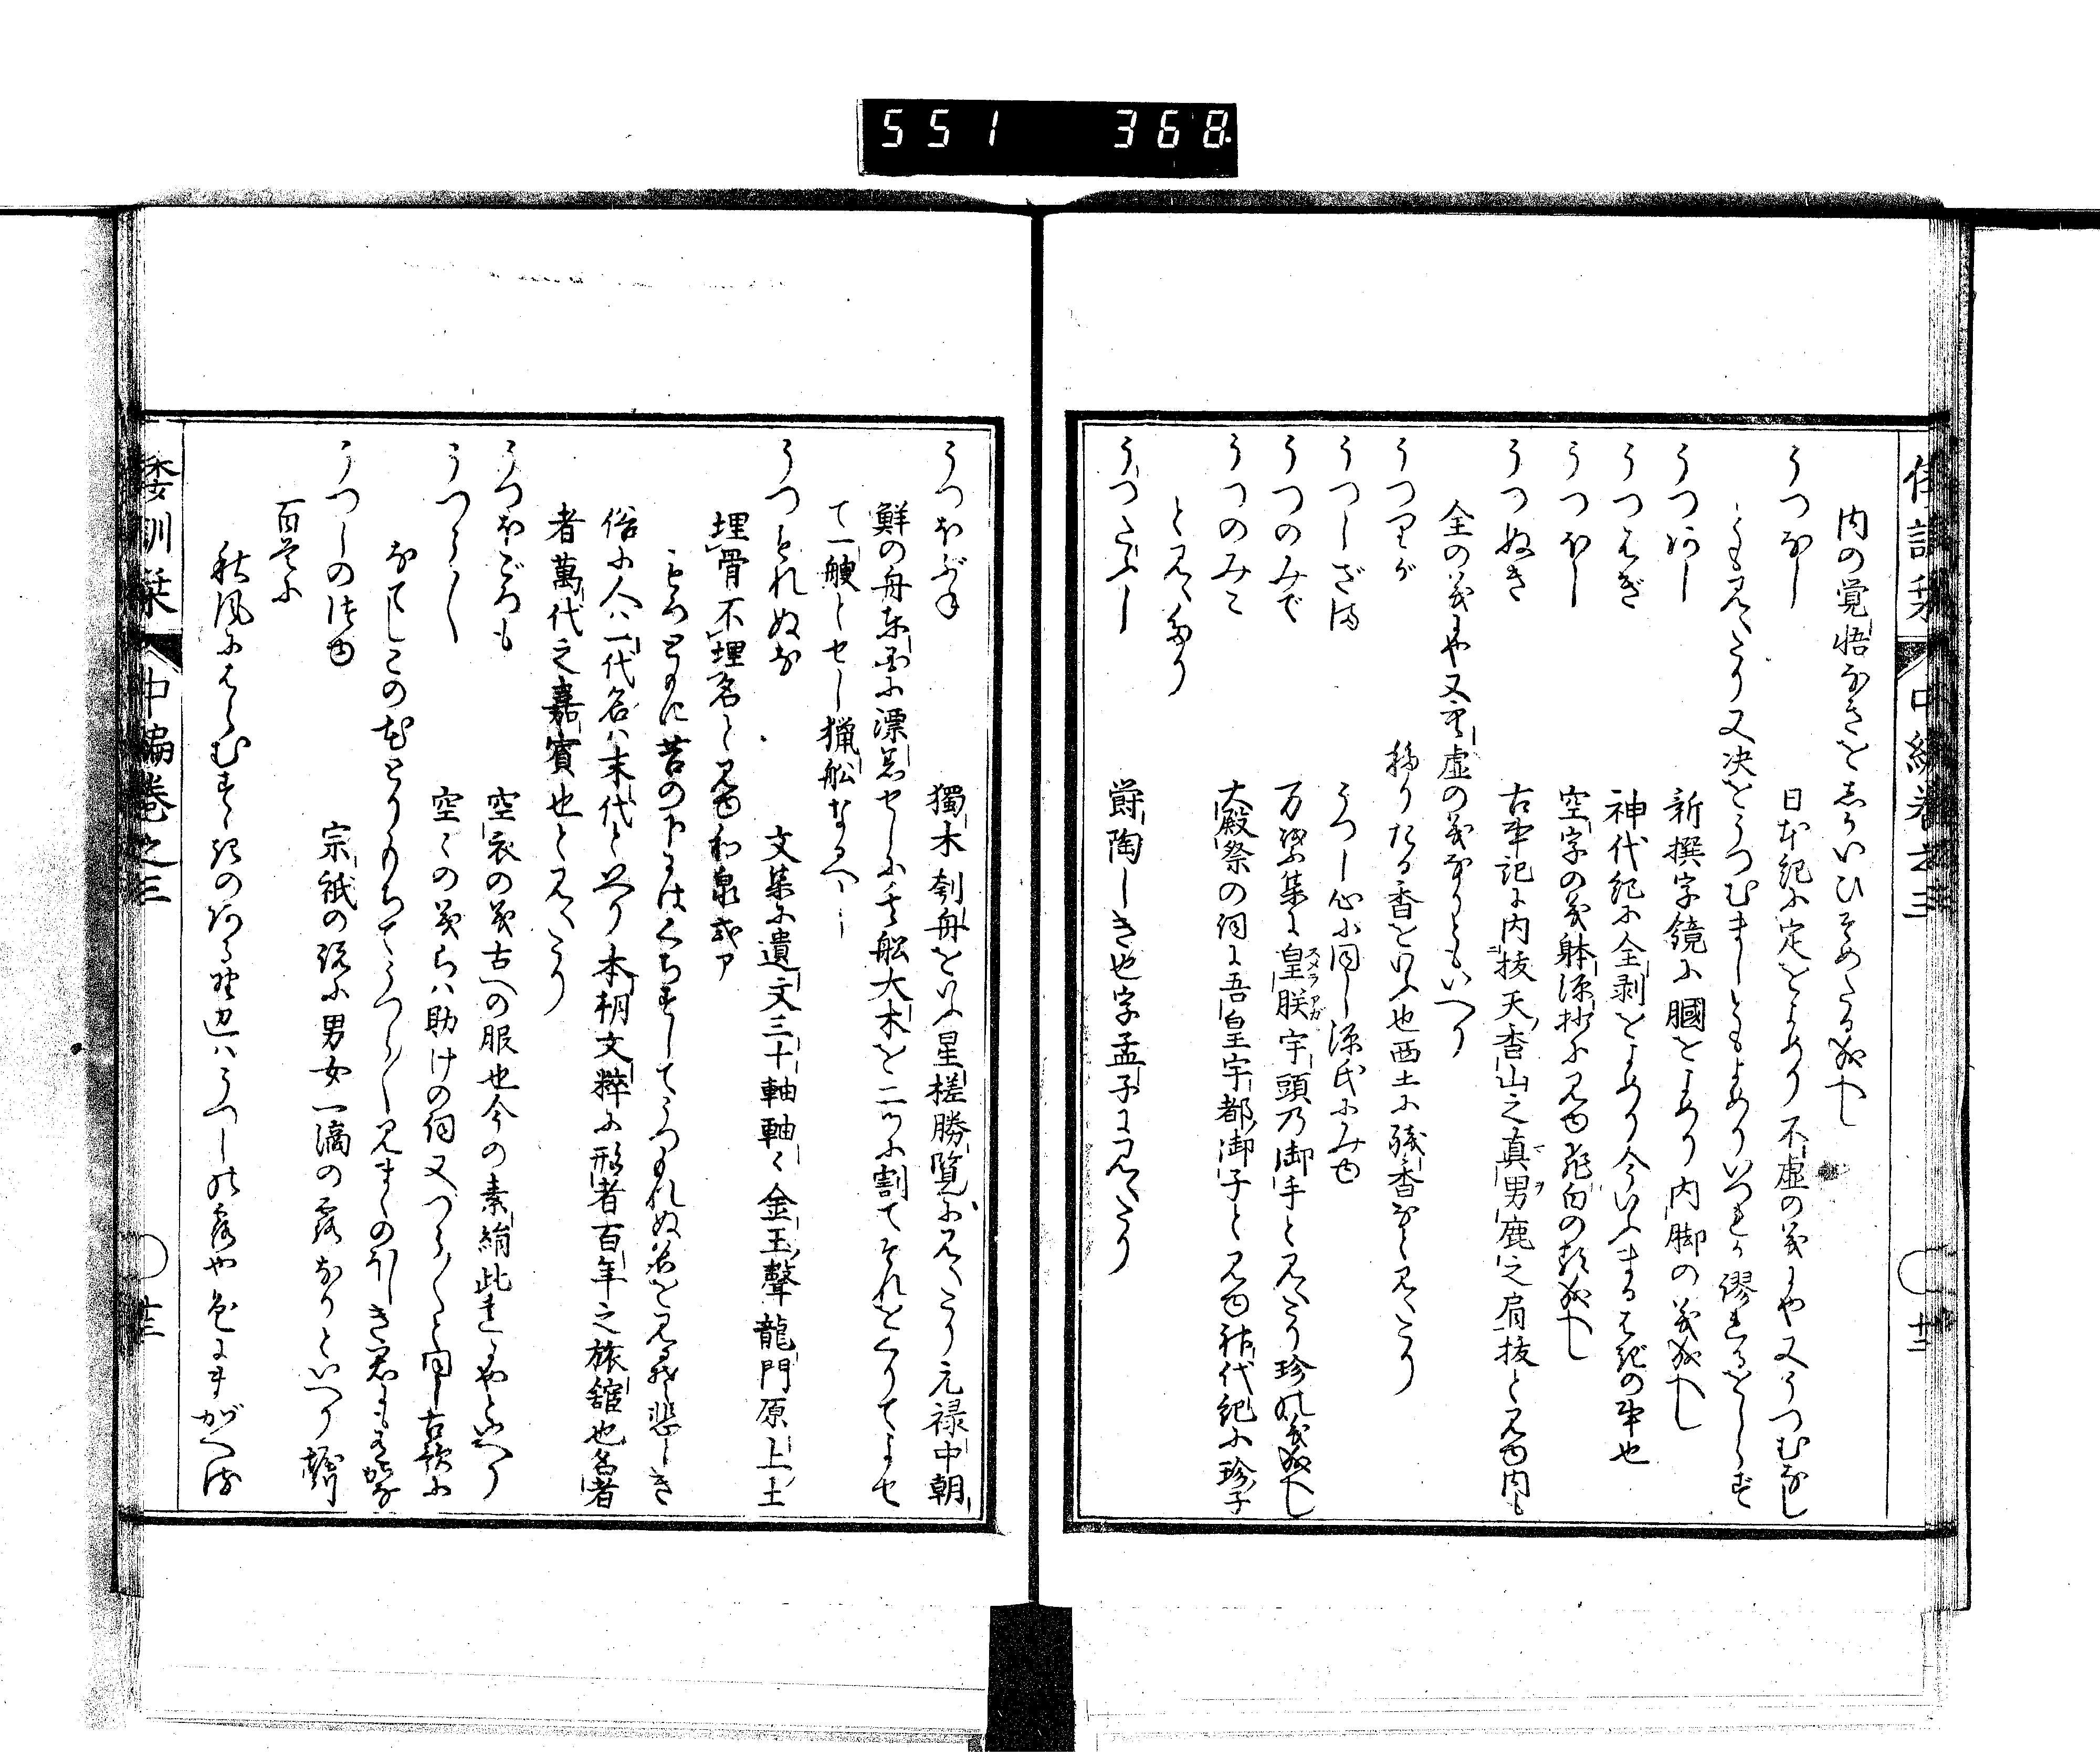 551 368
倭訓栞 中編卷之三 廿二
内の覚悟なきをしかいひそめたる成へし
うつなし 日本紀に定をよめり不虚の義にや又うつむなし
とも見えたり又决をうつむましともよめりいつれか繆れるをしらず
うつあし 新撰字鏡に膕をよめり内脚の義成へし
うつはぎ 神代紀に全剥をよめり今いふまるはぎの事也
うつほし 空字の義躰源抄に見ゆ
うつぬき 古事記に内抜天香山之真男鹿之肩抜と見ゆ内も
全の義にや又空虚の義なりともいへり
うつりが 移りたる香をいふ也西土に残香なと見えたり
うつしざま うつし心に同し源氏にみゆ
うつのみて 万葉集に皇朕宇頭乃御手と見えたり珍の義成へし
うつのみこ 大殿祭の詞に吾皇宇都御子と見ゆ神代紀に珍子
と見えたり
うつたふし 欝陶しき也字孟子に見えたり
うつほぶね 獨木刳舟をいふ星槎勝覧に見えたり元禄中朝
鮮の舟東国に漂着せしに其舩大木を二つに割てそれをくりてよせ
て一艘とせし猟舩なるへし
うつもれぬな 文集に遺文三十軸軸々金玉聲龍門原上土
埋骨不埋名と見ゆ和泉式ア
もろともに苔の下にはくちすしてうつもれぬ名を見るそ悲しき
俗に人ハ一代名ハ末代といへり本朝文粹に形者百年之旅舘也名者
者萬代之嘉賓也と見えたり
うつほごろも 空衣の義古への服也今の素絹此遺にやといへり
うつらうつら 空々の義らハ助けの詞又つらつらと同し古歌に
なてしこの花とりもちてうつらうつら見まくのほしき君にもあるかな
うつしのつゆ 宗祇の説に男女一滴の露なりといへり
百首に
秋風にはらむすゝきのある野辺ハうつしの露や色にまがへる
倭訓栞 中編卷之三 廿三